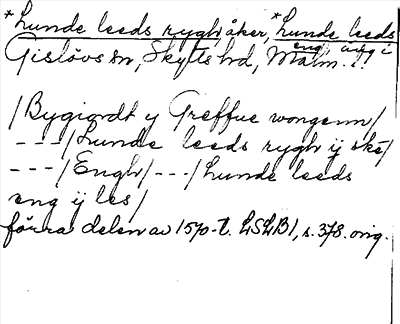 *Lunde leeds rygh, åker, *Lunde leeds
eng, äng i
Gislövs sn, Skytts hd, Malm. l.
/Bygiordt y Greffue wongenn/
---/Lunde leeds rygh ij ske/
---/Engh/---/Lunde leeds
eng ij les/
förra delen av 1570-t. LSLB 1, s. 378. orig.